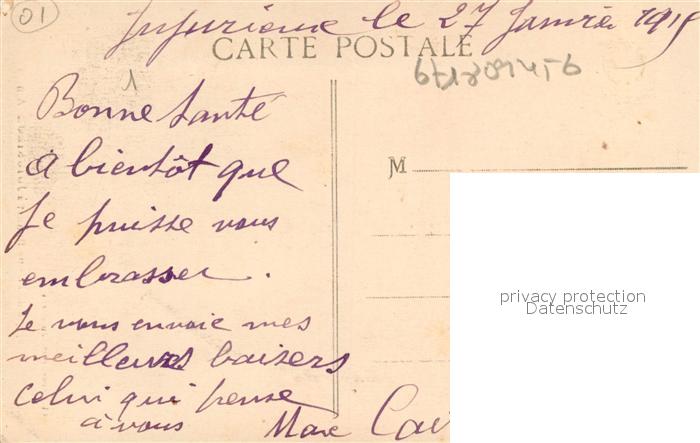 01
Jujurieux le 27 Janvier 1915
CARTE POSTALE
1
Bonne Santé
a bientôt que
Je puisse vous
embrasser.
Je vous envoie mes
meilleurs baisers
celui qui pense
à vous
Marc
M
privacy protection
Datenschutz